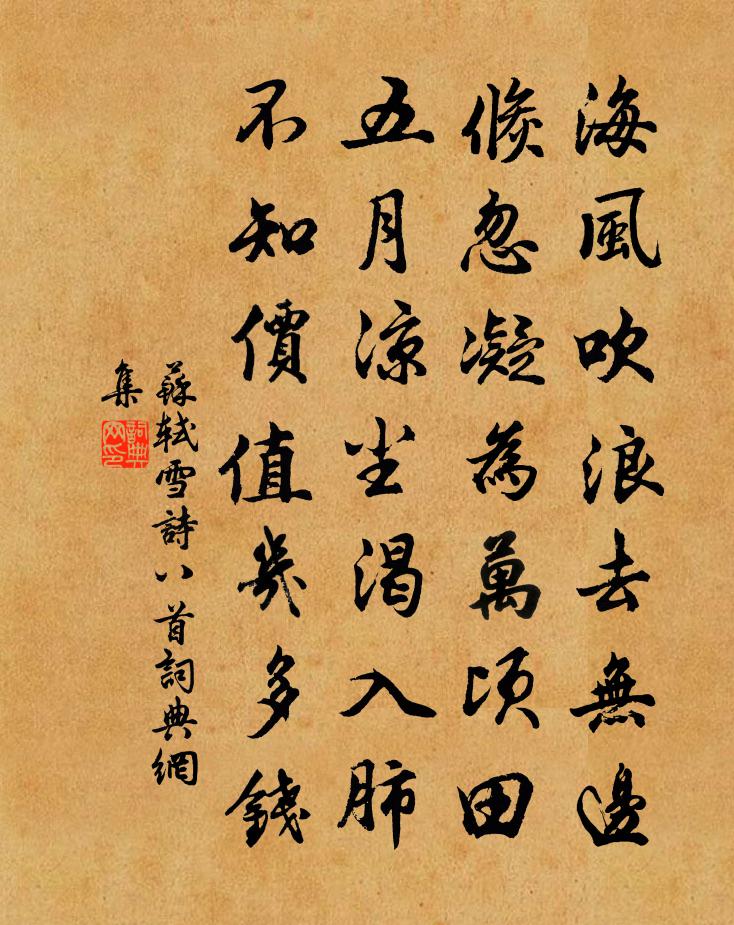 海風吹浪去無邊
倐忽凝為萬頃田
五月涼尘渴入肺
不知價值幾多錢
蘇軾雪詩八首詞典網
集
詞典网印